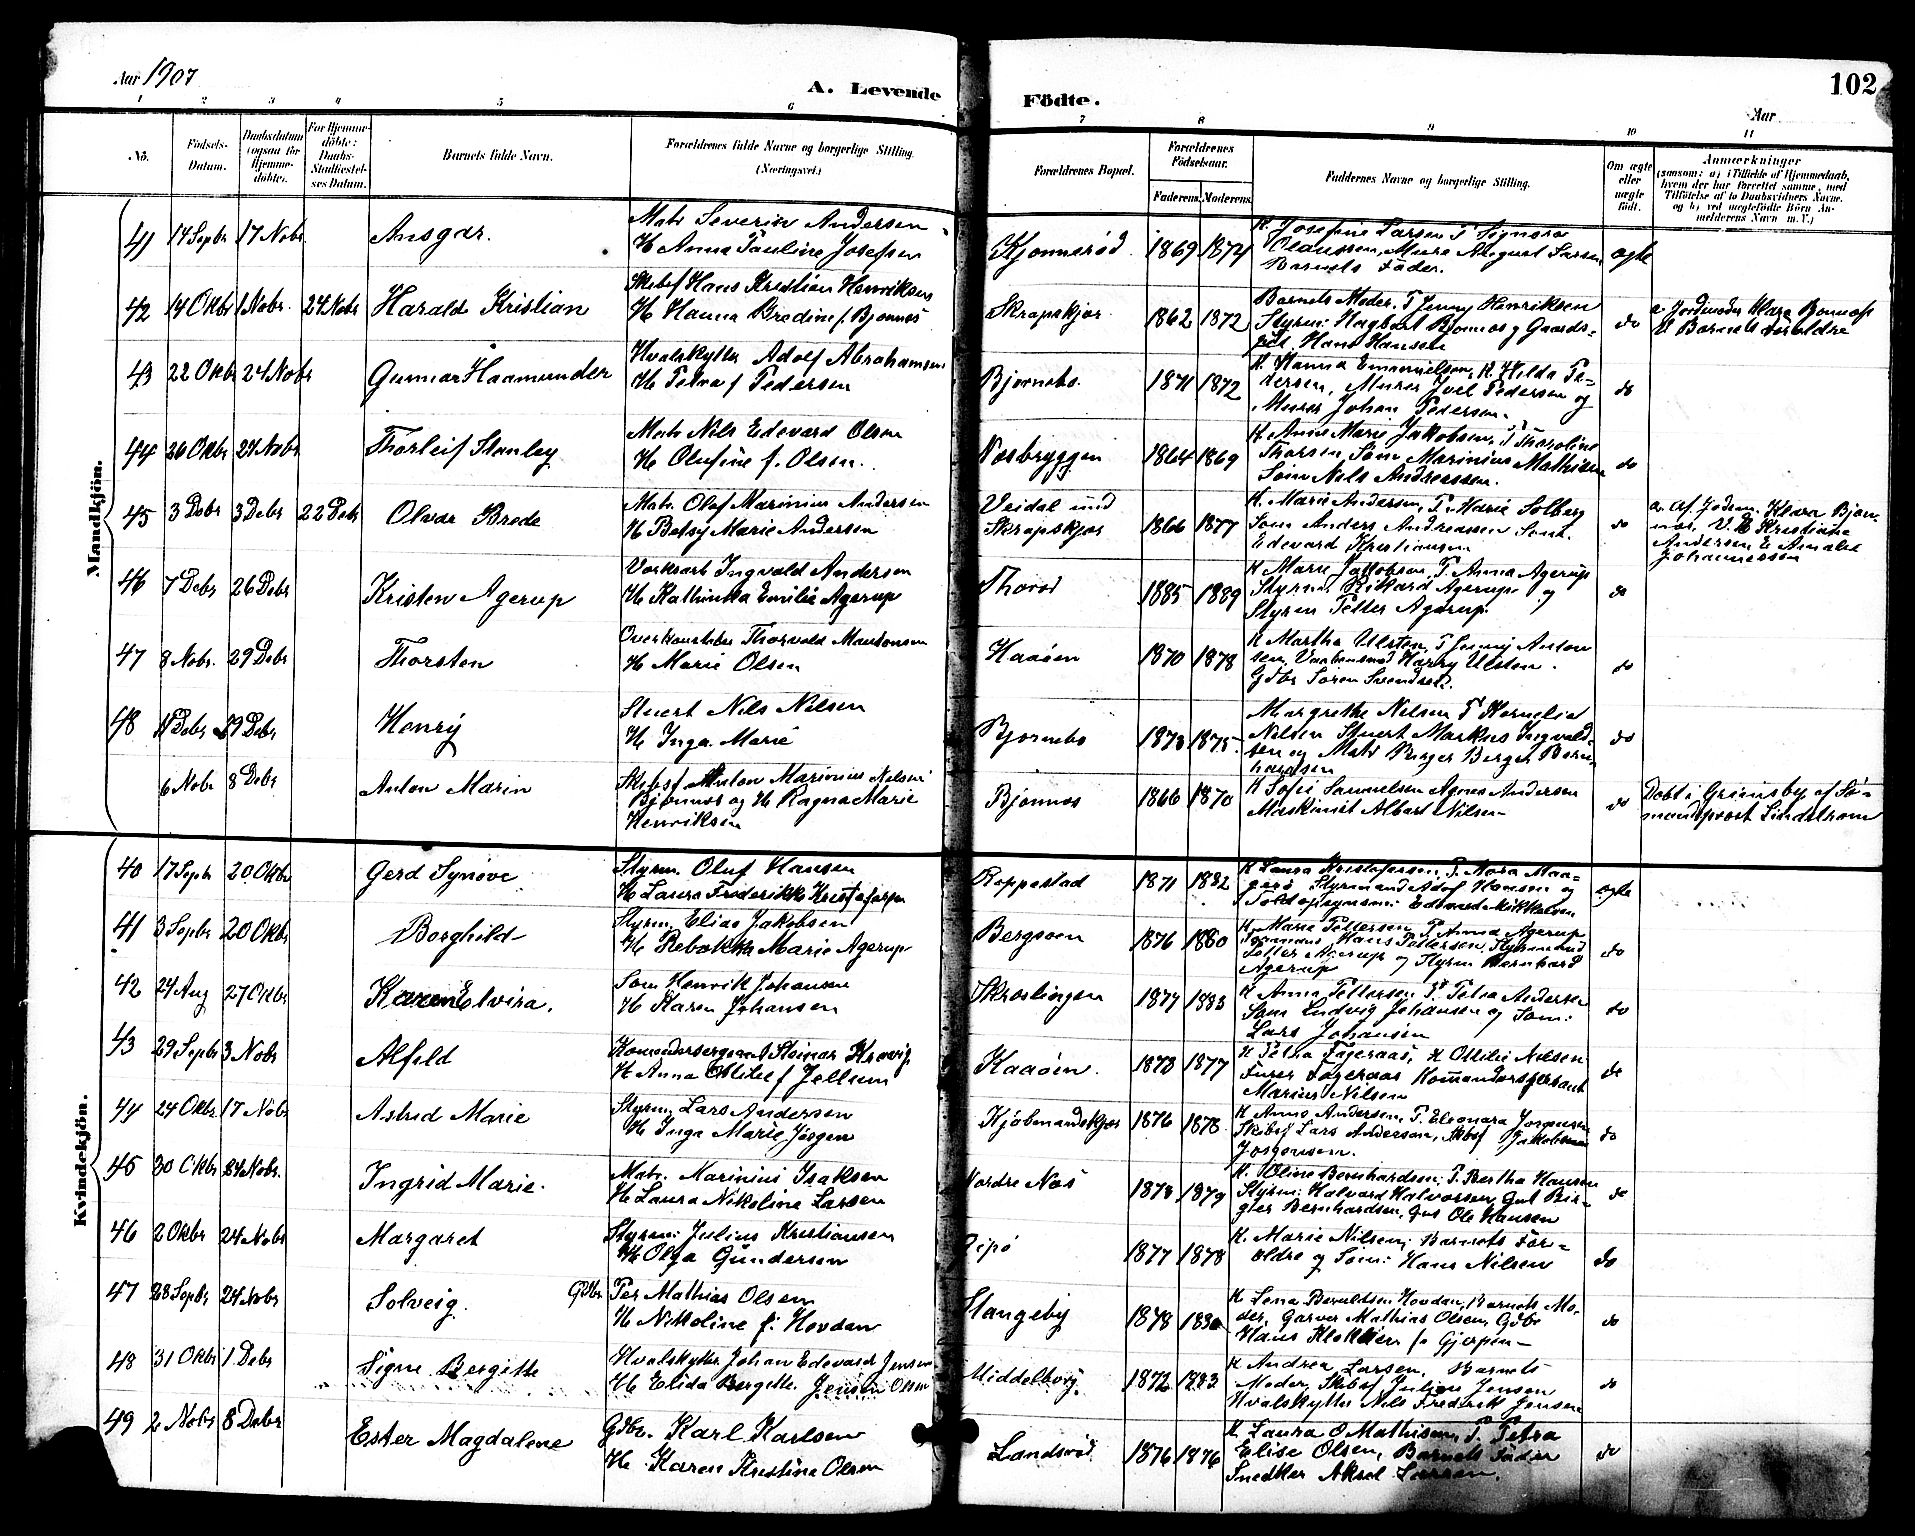 Aar 1907
A. Levende Födte.
102
Aar
1 2 3 4 5 6 7 8 9 10 11
No. Födsels-Datum. Daabsdatum (ogsaa for Hjemme-döbte). For Hjemme-döbte: Daabs-Stadfæstel-ses Datum. Barnets fulde Navn. Forældrenes fulde Navne og borgerlige Stilling. (Næringsvei.) Forældrenes Bopæl. Forældrenes Födselsaar. Faderens. Moderens. Faddernes Navne og borgerlige Stilling. Om ægte eller uægte födt. Anmærkninger (saasom: a) i Tilfælde af Hjemmedaab, hvem der har forrettet samme, med Tilföielse af to Daabsvidners Navne, og b) ved uægtefödte Börn An-melderens Navn m. V.)
Mandkjön.
41 14 Septbr 17 Nobr. Ansgar. Matr Severin Andersen
H Anna Pauline Josefsen Kjønnerød 1869 1874 K Josefine Larsen P Signora
Olaussen, Murer August Larsen
Barnets Fader. ægte
42 14 Oktbr 1 Nobr. 24 Nobr Harald Kristian Skibsf Hans Kristian Henriksen
H Hanna Bredine f. Bjønnes Skrapskjær 1862 1872 Barnets Moder. P Jenny Henriksen
Styrm: Hagbart Bjønnes og Gaards-
Hans Hansen do a Jordemoder Klara Bjønnes
Barnets Foræældre
43 22 Oktbr 24 Nobr Gunnar Haamunder Hvalskytter Adolf Abrahamsen
H Petra f Pedersen Bjørnebo. 1871 1872 K. Hanna Emanuelsen, K. Hilda Pe-
dersen, Murer Joel Pedersen og
Murer Johan Pedersen. do
44 26 Oktbr 24 Nobr Thorleif Stanley Matr Nils Edevard Olsen
H Olufine f. Olsen. Næsbryggen 1864 1869 K Anne Marie Jakobsen, P Thoroline
Thorsen, Søm Marinius Mathisen
Søm Nils Andreassen. do
45 3 Debr 3 Debr 22 Debr Olvar Brede Matr. Olaf Marinius Andersen
H Betsy Marie Andersen Veidal
Skrapskjær 1866 1877 K. Marie Andersen, P. Marie Solberg
Søm Anders Andreassen Søm.
Edevard Kristiansen do a. af Jodem. Klara Bjøn-
nes, V. Kristiane
Andersen E Amalie
Johannessen
46 7 Debr 26 Debr Kristen Agerup Værksarb Ingvald Andersen
H Kathinka Emilie Agerup Thorød 1885 1889 K Marie Jakobsen, P. Anna Agerup
Styrm. Rikard Agerup og
Styrm Petter Agerup. do
47 8 Nobr. 29 Debr Thorsten Overkonstabel Thorvald Mautensen
H Marie Olsen Kaaøen 1870 1878 K Martha Ulsten, P Jenny Anton
sen, Harry Ulsten.
Gdbr Søren Svendsen. do
48 11 Debr 29 Debr Henry Stuert Nils Nilsen
H Inga Marie Bjørnebo 1873 1875. Margrethe Nilsen P Kornelia
Nilsen Stuert Markus Ingvald-
sen og Matr Birger Berger Bern-
hardsen do
6 Nobr 8 Debr Anton Marin Skibsf Anton Marinius Nilsen
Bjønnes og H Ragna Marie
Henriksen Bjønnes 1866 1870 K Sofie Samuelsen Agnes Andersen
Maskinist Albert Nilsen do Døbt i Grimsby af Sø-
mandsprest Lindstrøm
Kvindekjön.
40 17 Septr 20 Oktbr Gerd Synøve Styrm. Oluf Hansen
H Laura Frederikke Kristofersen Roppestad 1871 1882 K Laura Kristofersen, P. Mara Maa-
gerø Styrmand Adof Hansen og
Toldopsynsm: Edvard Mikkelsen ægte
41 3 Septbr 20 Oktbr Borghild Styrm. Elias Jakobsen
H Rebekka Marie Agerup Bergsøen 1876 1880 K Marie Pettersen P. Anna Agerup
Hans Pettersen, Styrmand
Petter Agerup og Styrm Bernhard
Agerup do
42 24 Aug 27 Oktbr Karen Elvira. Søm Henrik Johansen
H Karen Johansen Skrøslingen 1877 1883 K Anna Pettersen, P. Petra Andersen
Søm Ludvig Johansen og Søm:
Lars Johansen do
43 29 Septbr 3 Nobr Alfeld Komandersergeant Steinar Krovig
H Anna Ottilie f Jellum Kaaøen. 1873 1877 K Petra Fageraas, K Ottilie Nilsen
Furer Fageraas Komandersersjant
Marius Nilsen do
44 24 Oktbr. 17 Nobr Astrid Marie Styrm. Lars Andersen
H Inga Marie Jørgen Kjøbmandskjær 1876 1878. K Anne Andersen, P. Eleonora Jørgensen
Skibsf Lars Andersen, Skbsf Jakobsen
Jørgensen. do
45 30 Oktbr 24 Nobr. Ingrid Marie. Matr. Marinius Isaksen
H Laura Nikoline Larsen Nordre Næs 1873 1879 K. Oline Bernhardsen, P. Bertha Hansen
Styrm: Halvard Halvorsen, Gut Bir-
ger Bernhardsen, Gut Ole Hansen do
46 2 Oktbr 24 Nobr Margaret Styrm: Julius Kristiansen
H Olga Gundersen Tipø 1877 1878 K. Marie Nilsen, Barnets For-
ældre og Søm: Hans Nilsen do
47 28 Septbr 24 Nobr Solveig. Gdbr Per Mathias Olsen
H Nikoline f: Hovdan Stangeby 1878 188 K Lena Hovdan, Barnets Mo-
der, Garver Mathias Olsen, Gdbr
Hans Klokken fr Gjerpen do
48 31 Oktbr 1 Debr Signe Bergitte Hvalskytter Johan Edevard Jensen
H Elida Bergitte Jensen Olsen Middelborg. 1872 1883 K Andrea Larsen, Barnets
Moder, Skibsf Julius Jensen
Hvalskytter Nils Frederik Jensen do
49 2 Nobr 8 Debr Ester Magdalene Gdbr. Karl Karlsen
H. Karen Kristine Olsen Landsrød 1876 1876 K Laura O Mathisen, P. Petra
Elise Olsen, Barnets Fader
Snedker Aksel Larsen. do